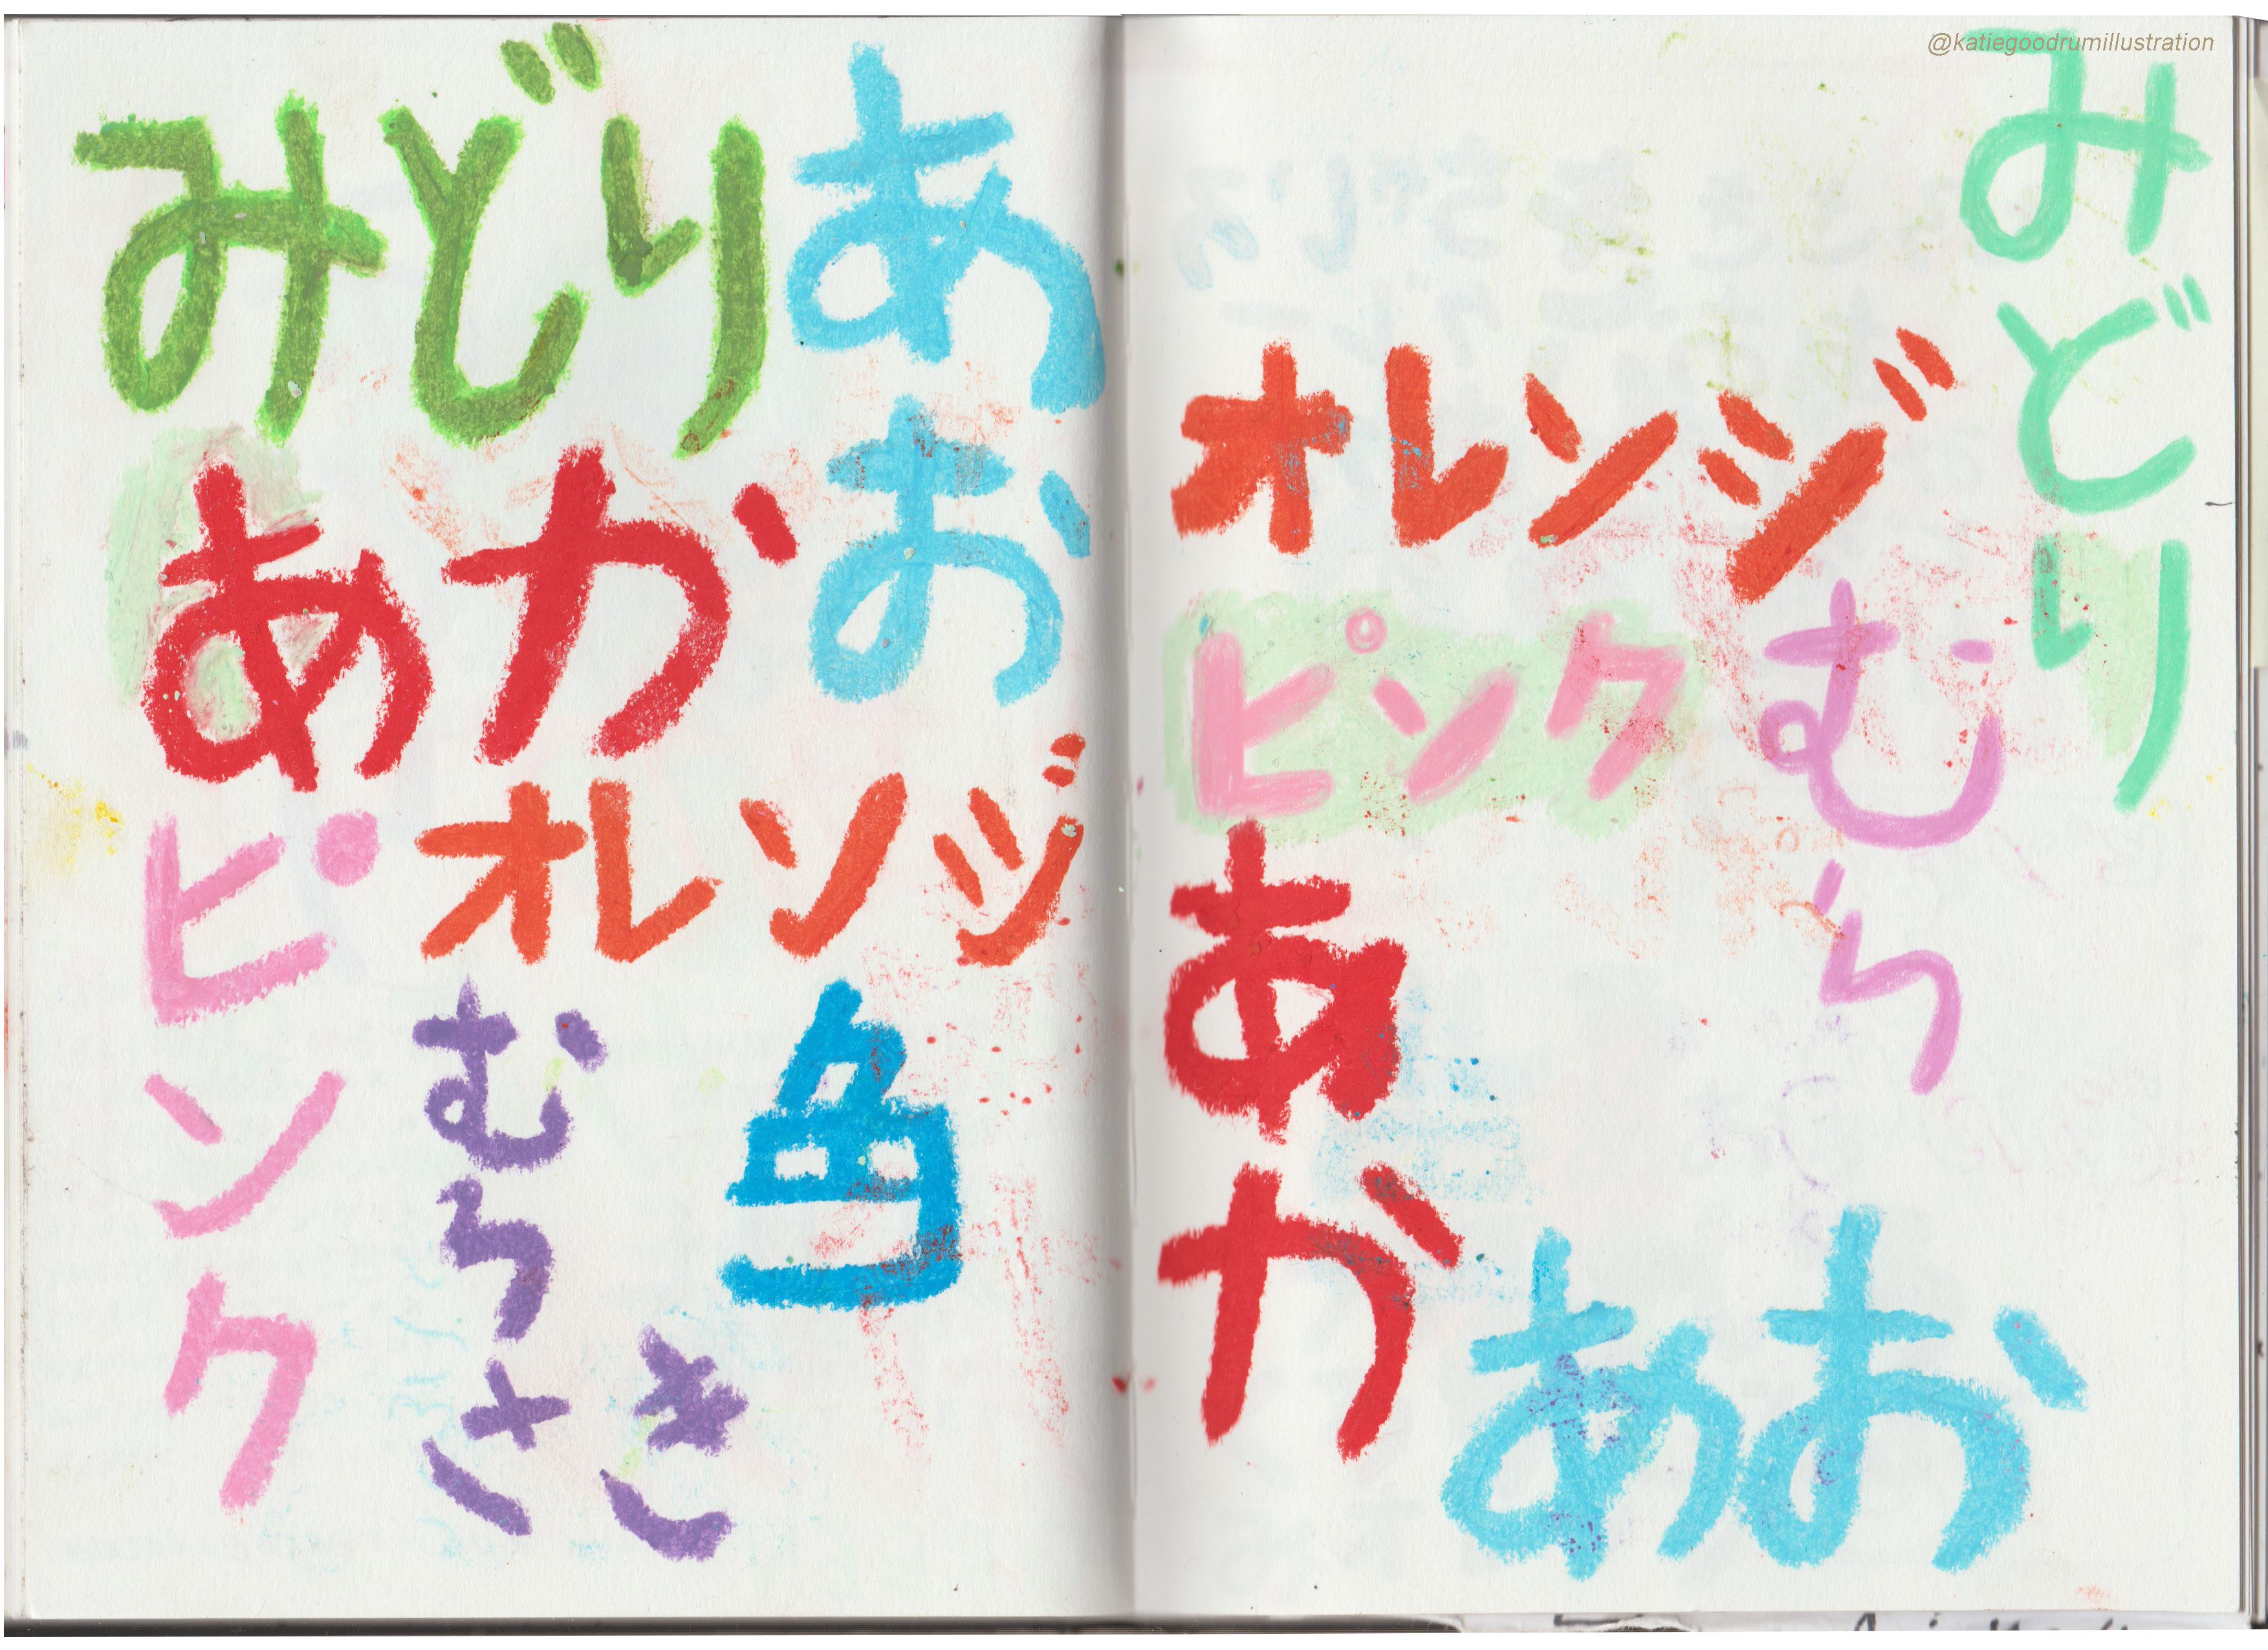 みどり
あお
あか
オレンジ
ピンク
むらさき
色
@katiegoodrumillustration
みどり
オレンジ
ピンク
むら
あか
あお